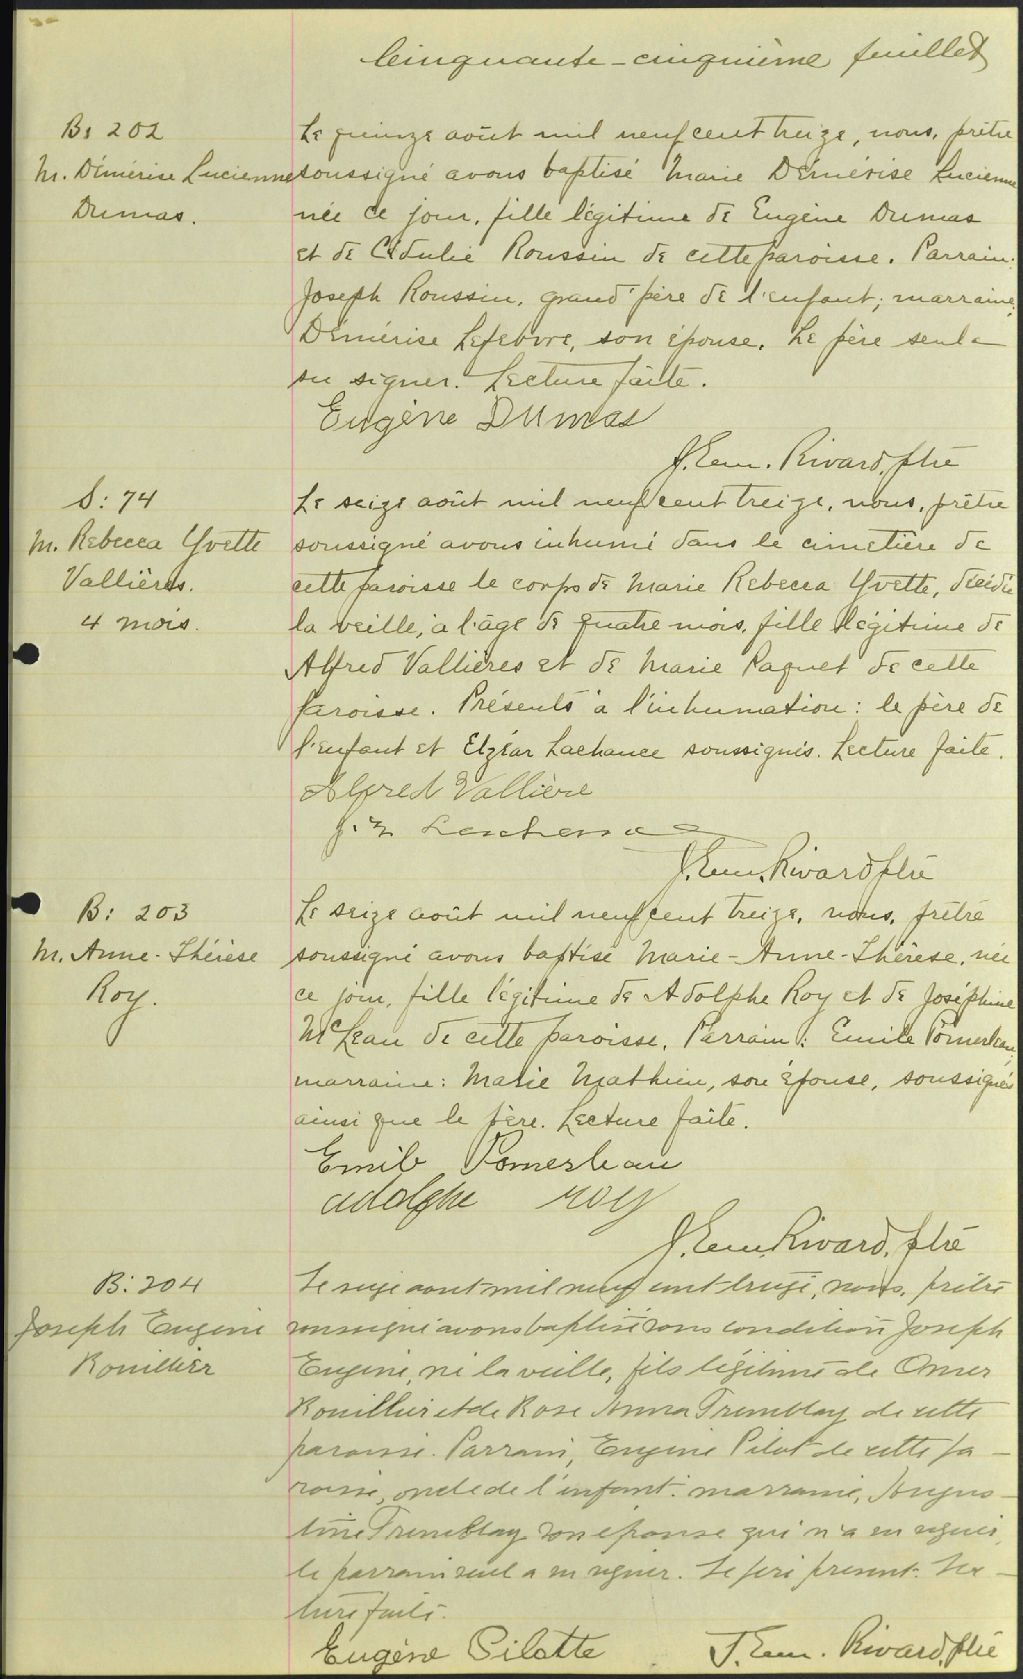 Cinquante-cinquième feuillet
B: 202
M. Démérise Lucienne
Dumas.
Le quinze août mil neuf cent treize, nous, prêtre
soussigné avons baptisé Marie Démérise Lucienne
née ce jour, fille légitime de Eugène Dumas
et de Cédulie Roussin de cette paroisse. Parrain:
Joseph Roussin, grand'père de l'enfant; marraine;
Démérise Lefebvre, son épouse. Le père seul a
su signer. Lecture faite.
Eugène Dumas
J. Em. Rivard, ptre
S: 74
M. Rebecca Yvette
Vallières.
4 mois.
Le seize août mil neuf cent treize, nous, prêtre
soussigné avons inhumé dans le cimetière de
cette paroisse le corps de Marie Rebecca Yvette, décédée
la veille, à l'âge de quatre mois, fille légitime de
Alfred Vallières et de Marie Paquet de cette
paroisse. Présents à l'inhumation: le père de
l'enfant et Elzéar Lachance soussignés. Lecture faite.
Alfred Vallière
J. Em. Rivard ptre
B: 203
M. Anne-Thérèse
Roy.
Le seize août mil neuf cent treize, nous, prêtre
soussigné avons baptisé Marie-Anne-Thérèse, née
ce jour, fille légitime de Adolphe Roy et de Joséphine
McLean de cette paroisse. Parrain: Emile Pomerleau;
marraine: Marie Mathieu, son épouse, soussignés
ainsi que le père. Lecture faite.
Emile Pomerleau
adolphe roy
J. Em. Rivard, ptre
B: 204
Joseph Eugène
Rouillier
Le seize aout mil neuf cent treize, nous, prêtre
soussigné avons baptisé sous condition Joseph
Eugène, né la veille, fils légitime de Omer
Rouillier et de Rose Anna Tremblay de cette
paroisse. Parrain, Eugène Pilot de cette pa-
roisse, oncle de l'enfant. marraine, Augus-
tine Tremblay son épouse qui n'a su signer,
le parrain seul a su signer. Le père présent. Lec-
ture faite.
Eugène Pilotte
J. Em. Rivard, ptre